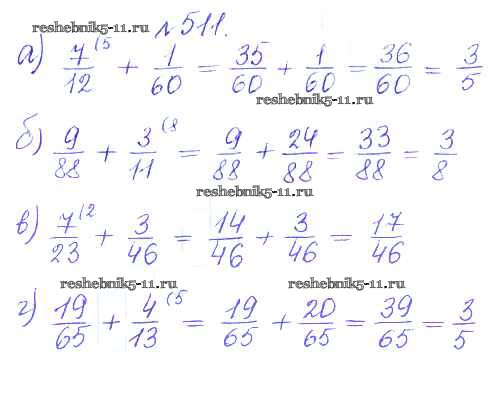 reshebnik5-11.ru
№511.
а) 7/12 (5 + 1/60 = 35/60 + 1/60 = 36/60 = 3/5
reshebnik5-11.ru
б) 9/88 + 3/11 (8 = 9/88 + 24/88 = 33/88 = 3/8
reshebnik5-11.ru
в) 7/23 (2 + 3/46 = 14/46 + 3/46 = 17/46
reshebnik5-11.ru reshebnik5-11.ru
г) 19/65 + 4/13 (5 = 19/65 + 20/65 = 39/65 = 3/5